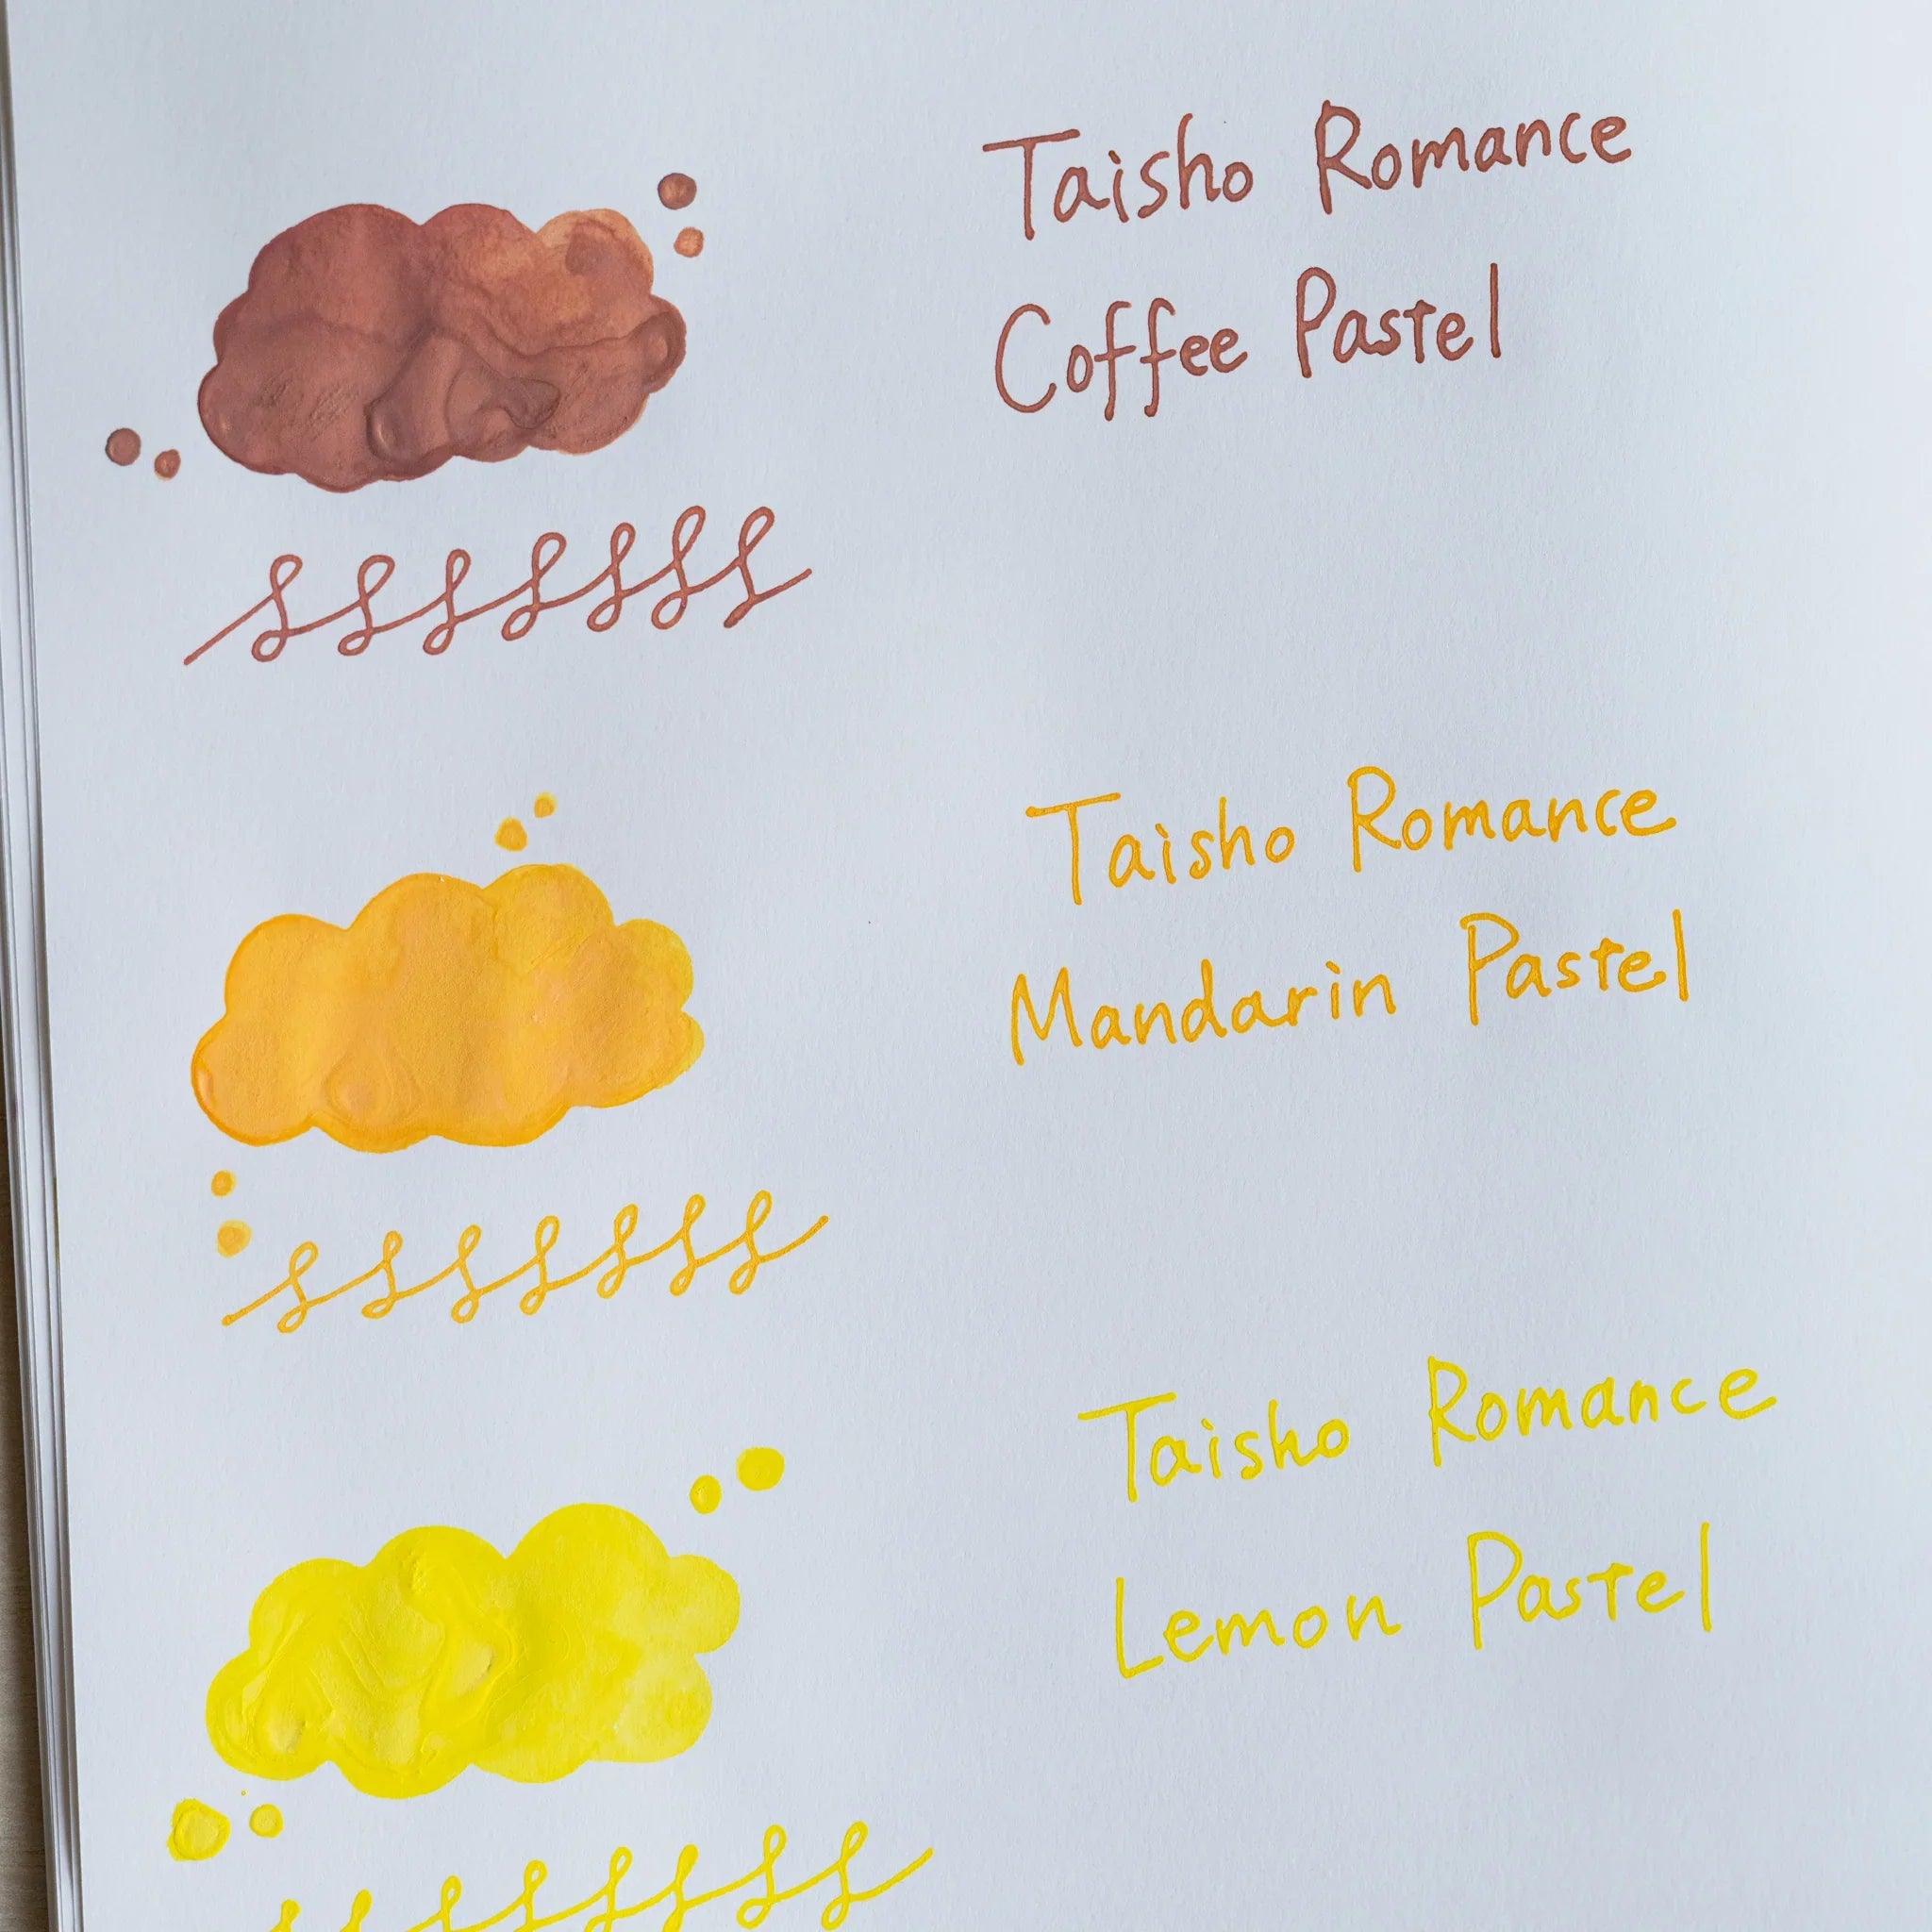 Taisho Romance
Coffee Pastel
Taisho Romance
Mandarin Pastel
Taisho Romance
Lemon Pastel